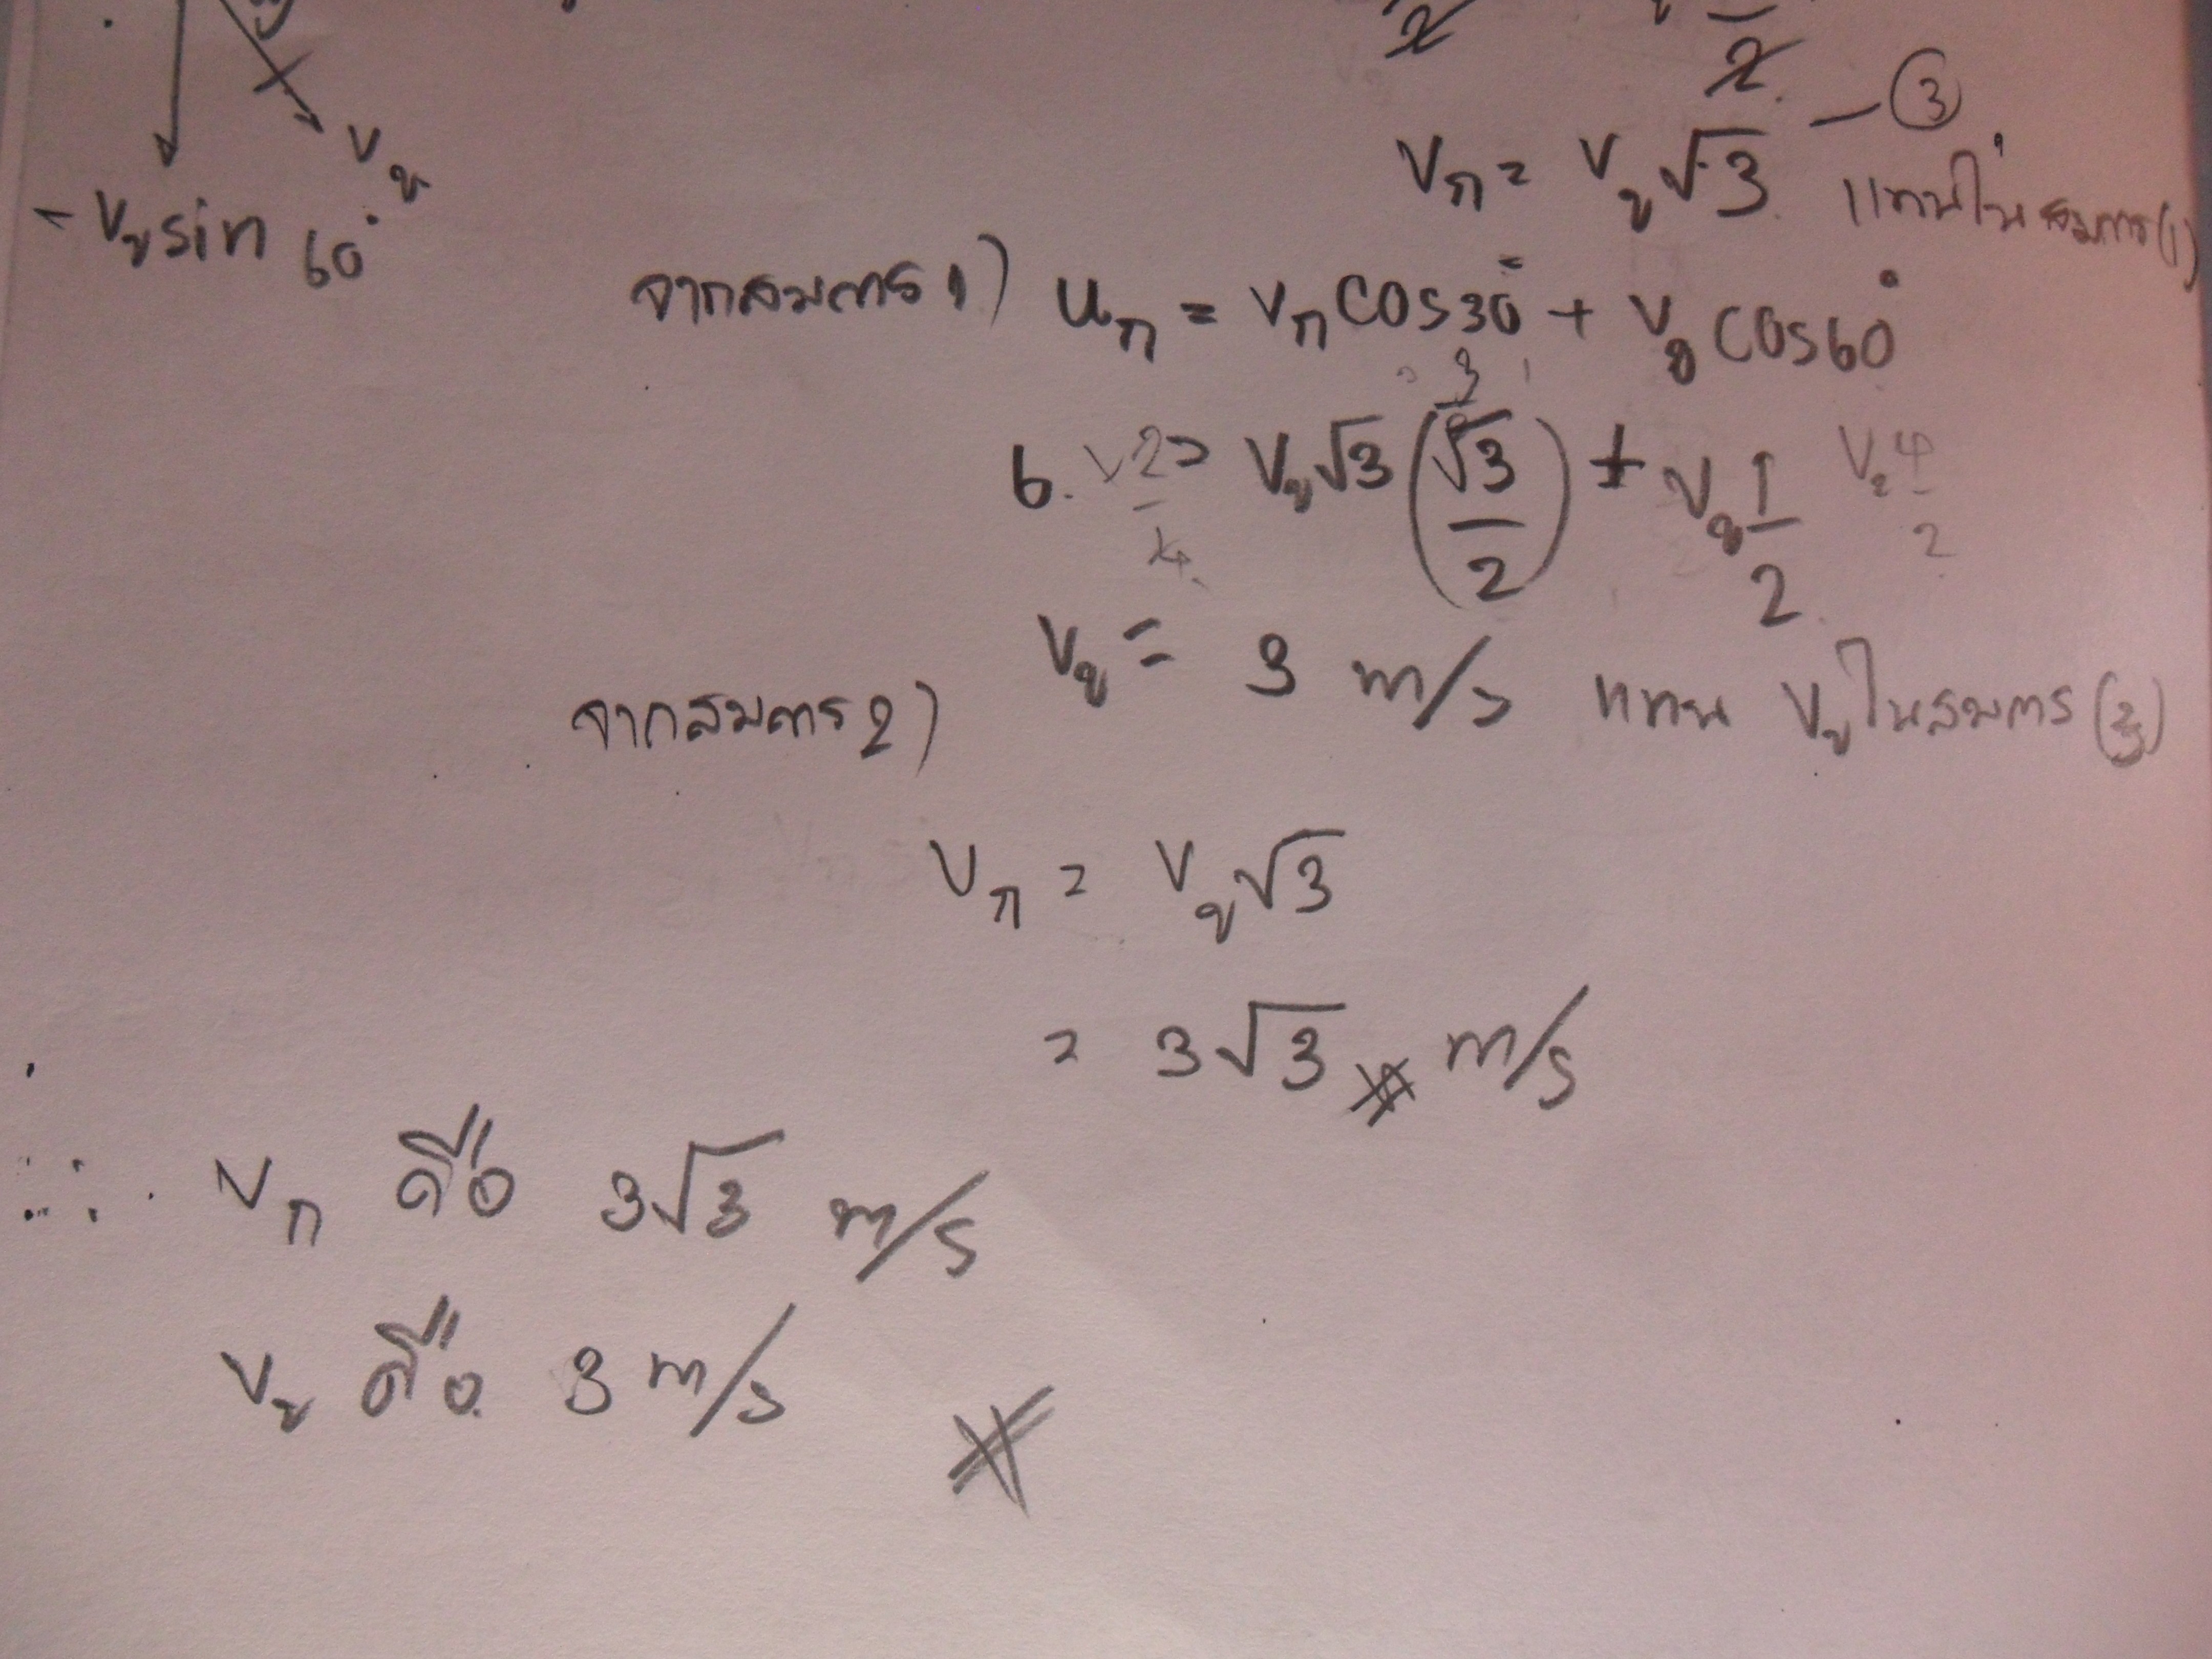 2 2
— ③
vก = vข√3 แทนในสมการ(1)
vข
-vข sin 60°
จากสมการ 1) uก = vก cos30° + vข cos60°
6 = vข√3 (√3/2) + vข 1/2
vข = 3 m/s แทน vข ในสมการ (3)
จากสมการ 2)
vก = vข√3
= 3√3 m/s
∴ vก คือ 3√3 m/s
vข คือ 3 m/s